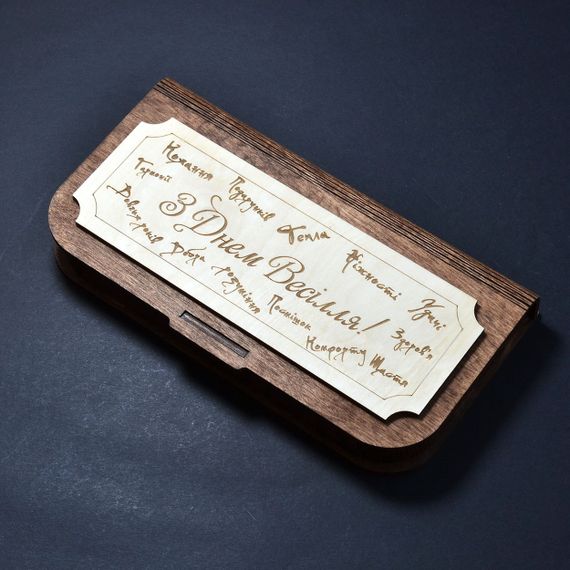 Кохання Підтримки Тепла Ніжності Удачі
Гармонії З Днем Весілля! Здоров'я
Довгих років Добра розуміння Посмішок Комфорту Щастя